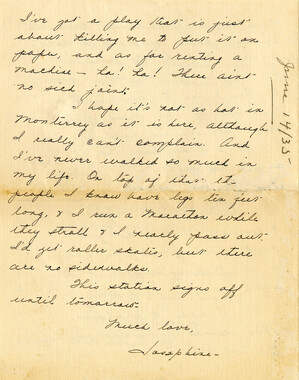 I've got a play that is just
about killing me to put it on
paper, and as for renting a
machine — ha! ha! There aint
no sich joint.
I hope it's not as hot in
Monterrey as it is here, although
I really can't complain. And
I've never walked so much in
my life. On top of that th-
people I know have legs ten feet
long, & I run a Marathon while
they stroll & I nearly pass out.
I'd get roller skates, but there
are no sidewalks.
This station signs off
until tomorrow.
Much love,
Josephine—
June 14/35